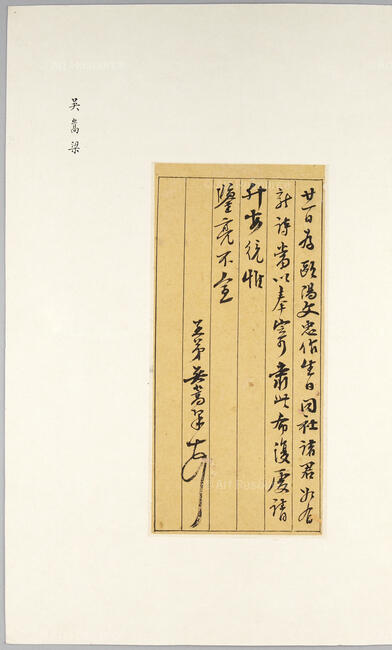 廿一日為歐陽文忠作生日同社諸君如有
新詩當以奉寄肅此布復虔請
升安統惟
鑒亮不宣
吳嵩梁
吳嵩梁